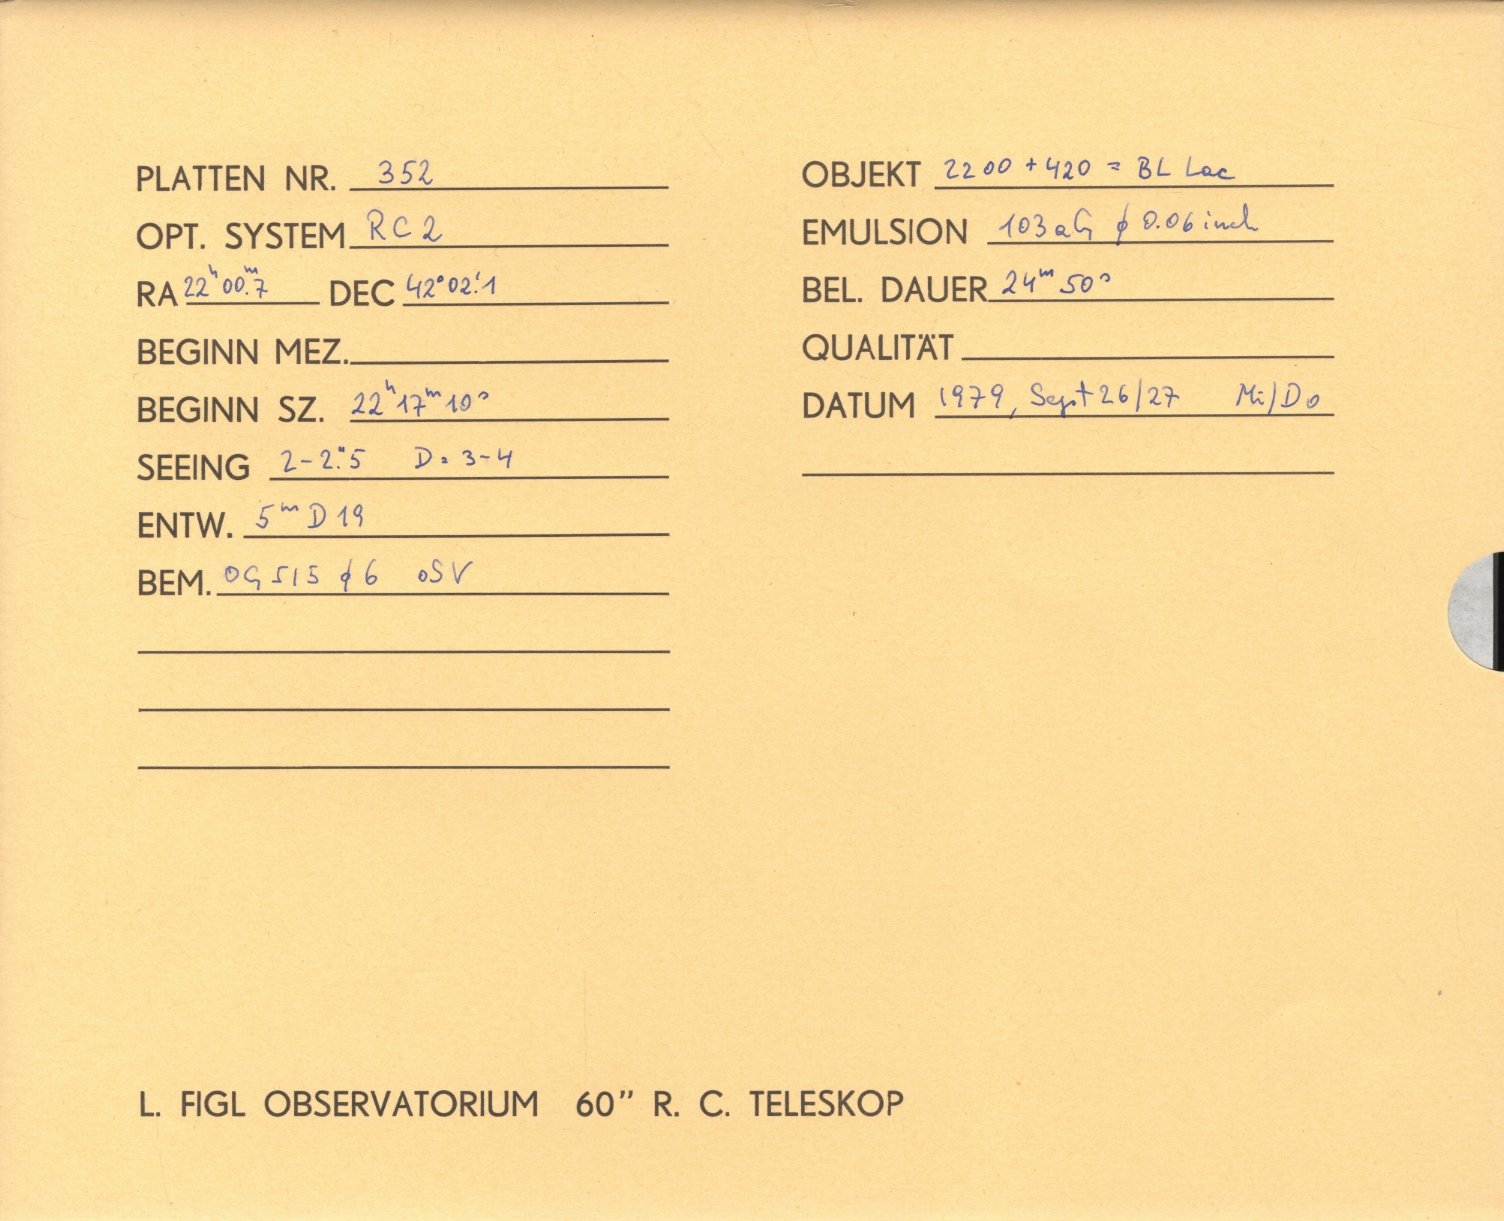 PLATTEN NR. 352
OPT. SYSTEM RC 2
RA 22ʰ00ᵐ.7 DEC 42°02'.1
BEGINN MEZ.
BEGINN SZ. 22ʰ17ᵐ10ˢ
SEEING 2-2".5 D=3-4
ENTW. 5ᵐ D19
BEM. OG515 ϕ6 oSV
OBJEKT 2200+420 = BL Lac
EMULSION 103aG ϕ 0.06 inch
BEL. DAUER 24ᵐ 50ˢ
QUALITÄT
DATUM 1979, Sept 26/27 Mi/Do
L. FIGL OBSERVATORIUM 60" R. C. TELESKOP